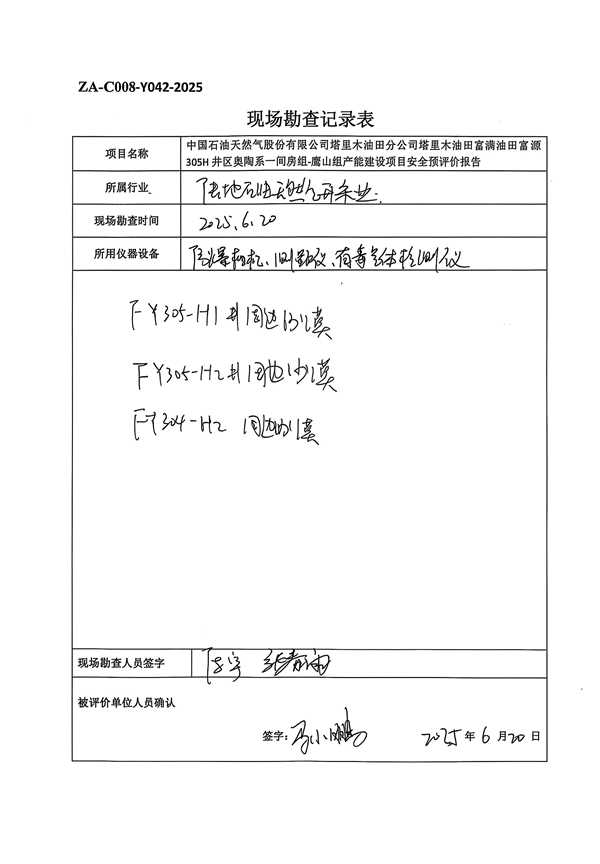 ZA-C008-Y042-2025
现场勘查记录表
项目名称
中国石油天然气股份有限公司塔里木油田分公司塔里木油田富满油田富源
305H 井区奥陶系一间房组-鹰山组产能建设项目安全预评价报告
所属行业
陆地石油天然气开采业
现场勘查时间
2025.6.20
所用仪器设备
防爆相机、测距仪、有毒气体检测仪
FY305-H1井周边沙漠
FY305-H2井周边沙漠
FY304-H2 周边沙漠
现场勘查人员签字
陈宇
被评价单位人员确认
签字：
2025 年 6 月 20 日